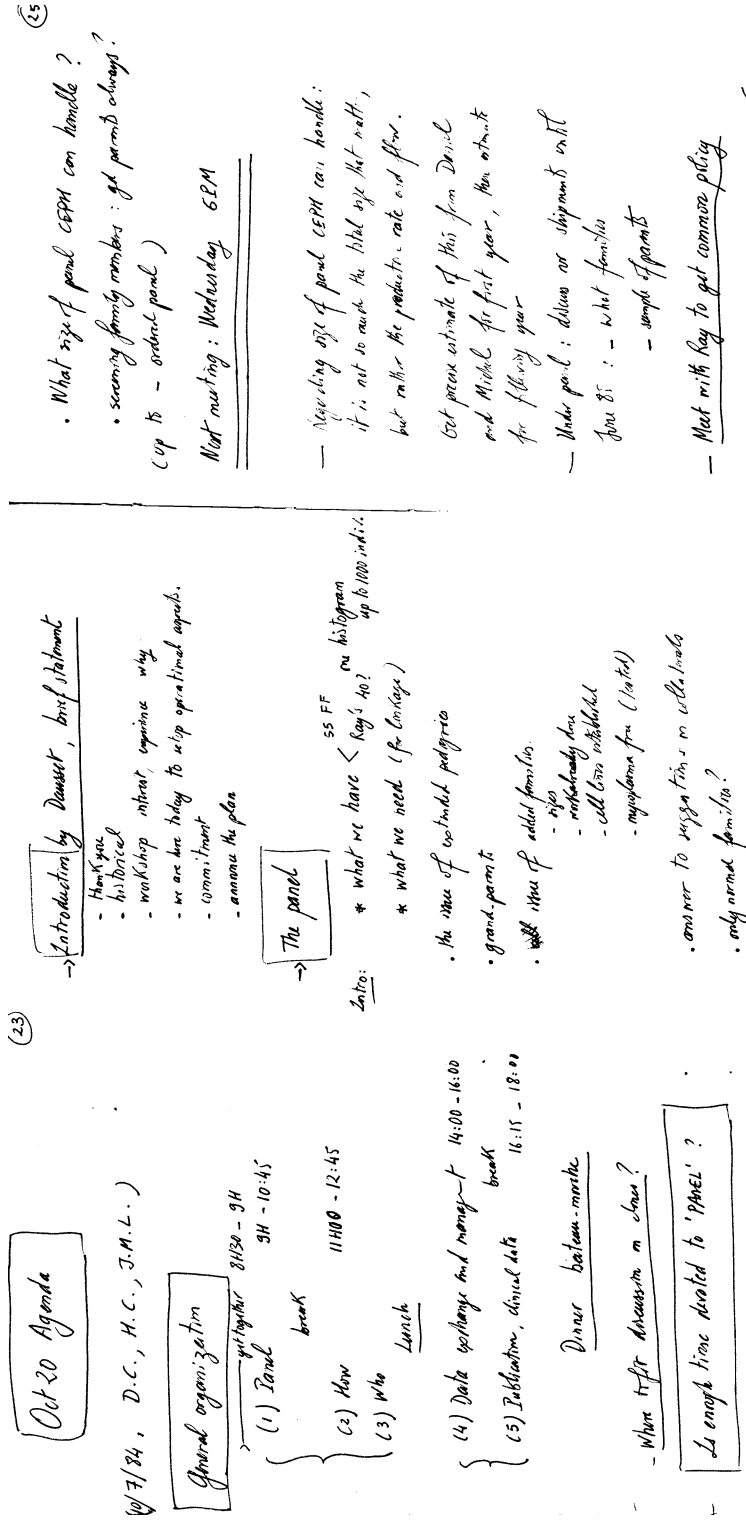 (23)
Oct 20 Agenda
10/7/84, D.C., H.C., J.M.L.)
General organization
get together 8H30 - 9H
(1) Panel 9H - 10:45
break
(2) How 11H00 - 12:45
(3) Who
Lunch
(4) Data exchange and managemt 14:00 - 16:00
break
(5) Publication, clinical data 16:15 - 18:00
Dinner bateau-mouche
- Where to fit discussion on clones?
Is enough time devoted to 'PANEL' ?
→ Introduction by Dausset, brief statement
- thank you
- historical
- workshop interest, experience why
- we are here today to setup operational aspects.
- commitment
- announce the plan
→ The panel
55 FF
Intro: * what we have < Ray's 40? one histogram
up to 1000 indiv.
* what we need (for linkage)
• the issue of extended pedigrees
• grand-parents
• issue of added families.
- sizes
- work already done
- cell lines established
- mycoplasma free (tested)
• answer to suggestions on collaterals
• only normal families?
(25)
• What size of panel CEPH can handle ?
• screening family members : get parents always?
(up to - ordered panel )
Next meeting: Wednesday 6PM
- Regarding size of panel CEPH can handle:
it is not so much the total size that matters,
but rather the production rate and flow.
Get precise estimate of this from Daniel
and Michel for first year, then estimate
for following year
- Under panel : discuss no shipments until
June 85 : - what families
- sample of parents
- Meet with Ray to get common policy